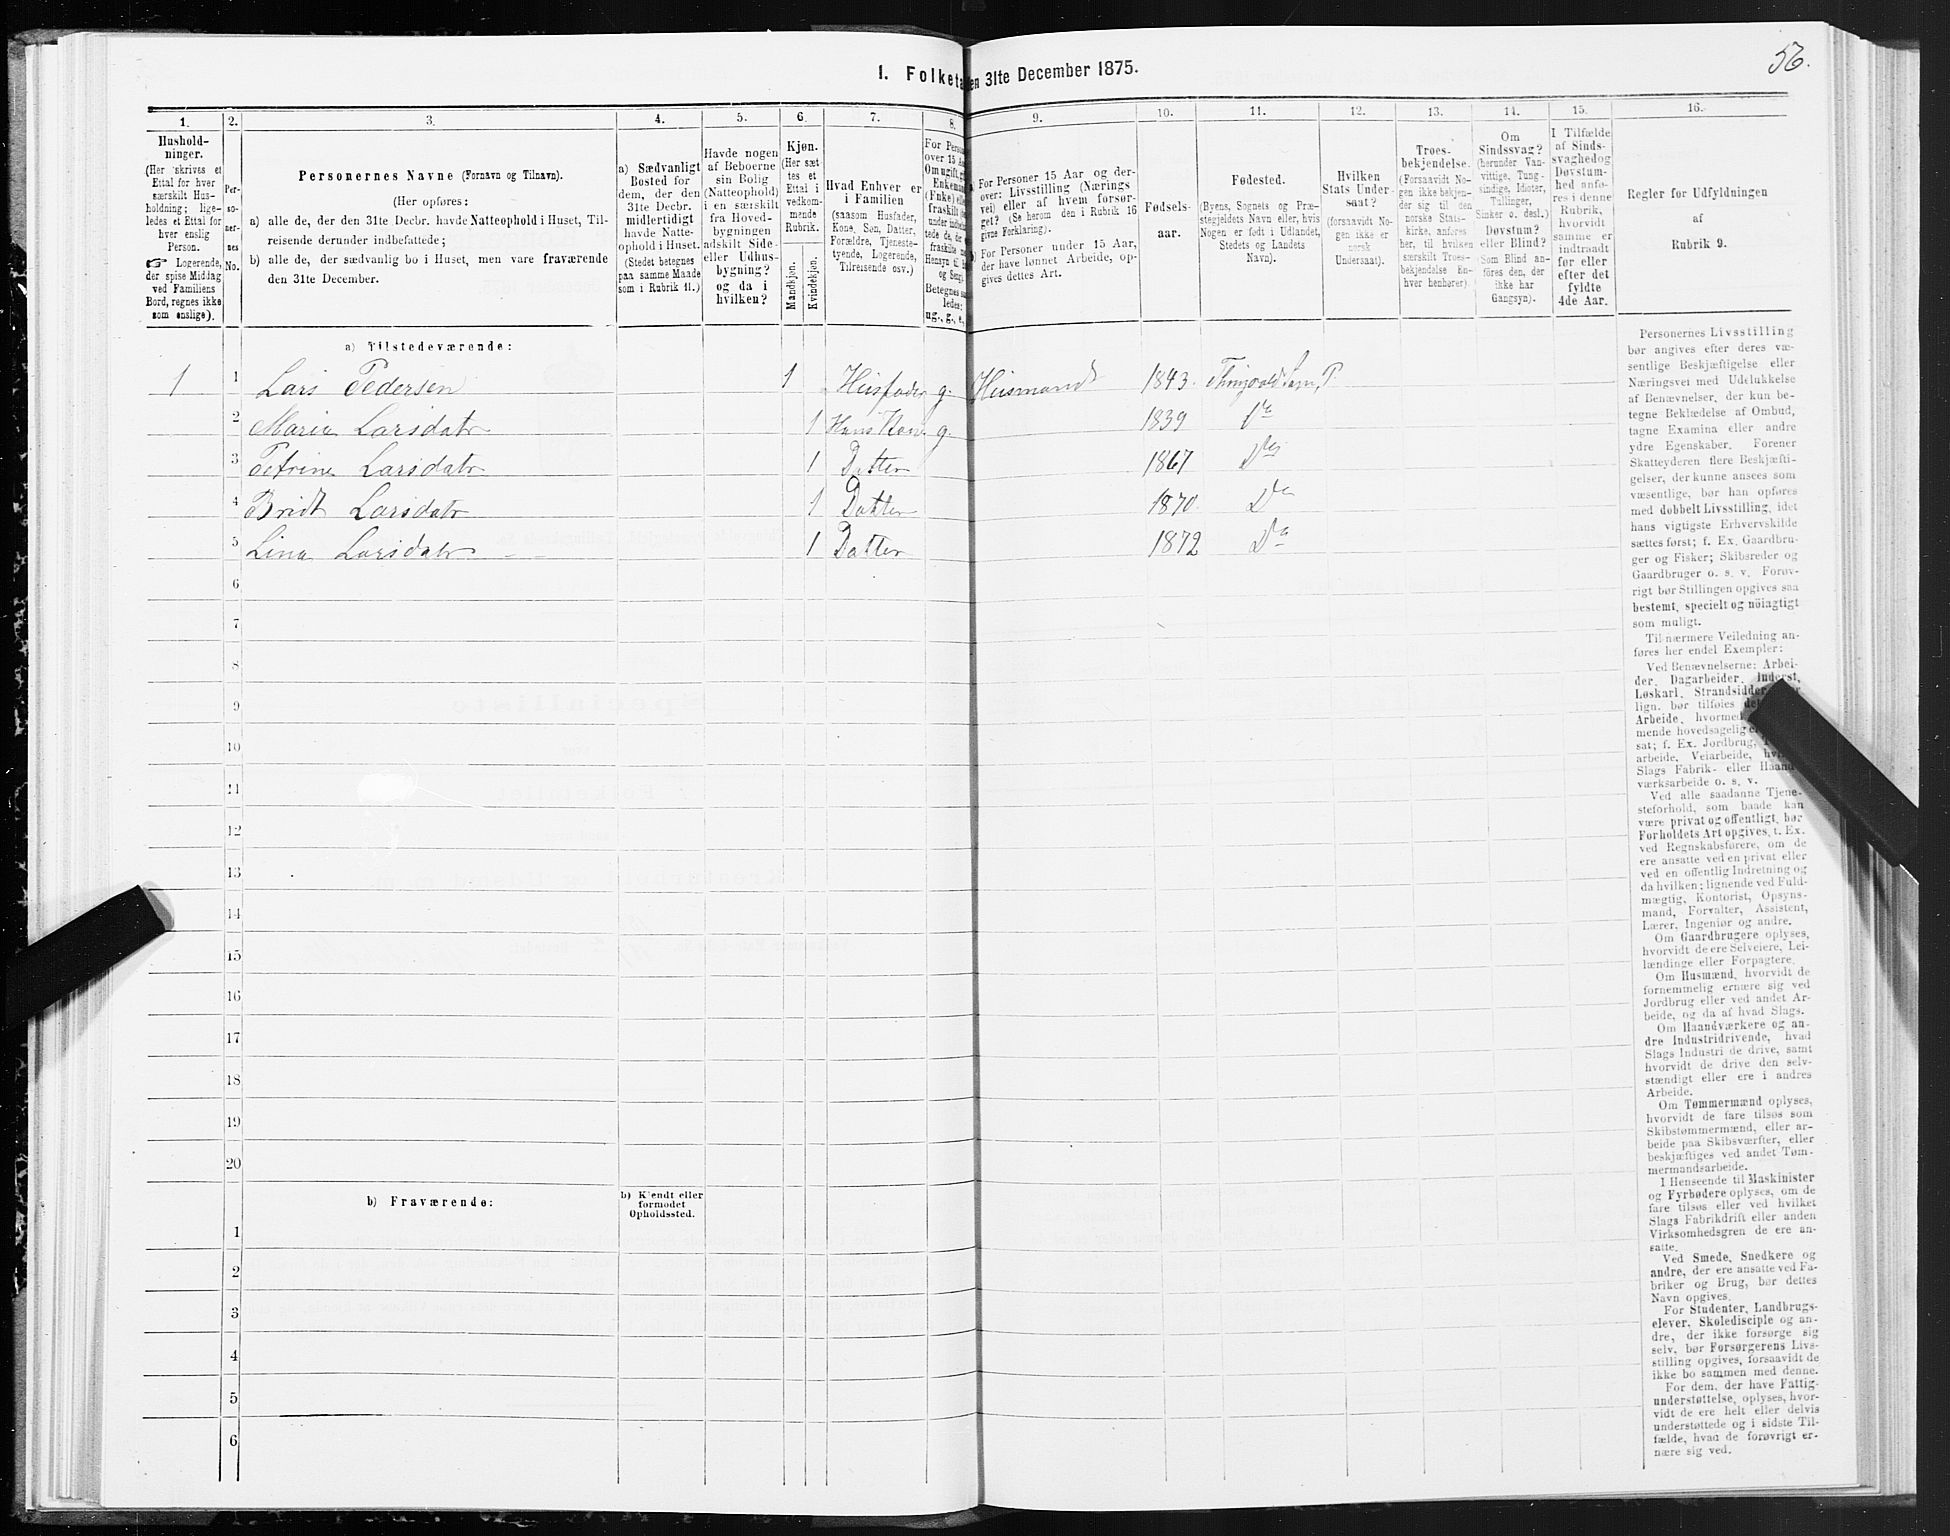 56.
1. Folketa en 31te December 1875.
1. 2. 3. 4. 5. 6. 7. 8. 9. 10. 11. 12. 13. 14. 15. 16.
Hushold-
ninger.
(Her skrives et
Ettal for hver
særskilt Hus-
holdning; lige-
ledes et Ettal for
hver enslig
Person.
☞ Logerende,
der spise Middag
ved Familiens
Bord, regnes ikke
som enslige).
Per-
so-
ner-
nes
No.
Personernes Navne (Fornavn og Tilnavn).
(Her opføres:
a) alle de, der den 31te Decbr. havde Natteophold i Huset, Til-
reisende derunder indbefattede;
b) alle de, der sædvanlig bo i Huset, men vare fraværende
den 31te December.
a) Sædvanligt
Bosted for
dem, der den
31te Decbr.
midlertidigt
havde Natte-
ophold i Huset.
(Stedet betegnes
paa samme Maade
som i Rubrik 11.)
Havde nogen
af Beboerne
sin Bolig
(Natteophold)
i en særskilt
fra Hoved-
bygningen
adskilt Side-
eller Udhus-
bygning?
og da i
hvilken?
Kjøn.
(Her sæt-
tes et
Ettal i
vedkom-
mende
Rubrik.
Mandkjøn.
Kvindekjøn.
Hvad Enhver er
i Familien
(saasom Husfader,
Kone, Søn, Datter,
Forældre, Tjeneste-
tyende, Logerende,
Tilreisende osv.)
For Perso
over 15 Aa
Om ugift, gi
Enkeman
(Enke) elle
fraskilt
under indbefa
tede de, der
fraskilte
Hensyn til
og Seng
Betegnes sa
ledes:
ug., g., e.,
a) For Personer 15 Aar og der-
over: Livsstilling (Nærings
vei) eller af hvem forsør-
get? (Se herom den i Rubrik 16
givne Forklaring).
b) For Personer under 15 Aar,
der have lønnet Arbeide, op-
gives dettes Art.
Fødsels-
aar.
Fødested.
(Byens, Sognets og Præ-
stegjeldets Navn eller, hvis
Nogen er født i Udlandet,
Stedets og Landets
Navn).
Hvilken
Stats Under-
saat?
(forsaavidt No-
gen ikke er
norsk
Undersaat).
Troes-
bekjendelse.
(Forsaavidt No-
gen ikke bekjen-
der sig til den
norske Stats-
kirke, anføres
her, til hvilken
særskilt Troes-
bekjendelse En-
hver henhører).
Om
Sindssvag?
(herunder Van-
vittige, Tung-
sindige, Idioter,
Tullinger,
Sinker o. desl.)
Døvstum?
eller Blind?
(Som Blind an-
føres den, der
ikke har
Gangsyn).
I Tilfælde
af Sinds-
svaghed og
Døvstum-
hed anfø-
res i denne
Rubrik,
hvorvidt
samme er
indtraadt
før eller
efter det
fyldte
4de Aar.
Regler for Udfyldningen
af
Rubrik 9.
a) Tilstedeværende:
1 1 Lars Pedersen 1 Husfader g. Husmand 1843. P.
2 Maria Larsdatr 1 Hans Kone g. 1839 Do
3 Petrine Larsdatr 1 Datter 1867 Do
4 Bridt Larsdatr 1 Datter 1870 Do
5 Lina Larsdatr 1 Datter 1872 Do
6
7
8
9
10
11
12
13
14
15
16
17
18
19
20
b) Fraværende:
b) Kjendt eller
formodet
Opholdssted.
1
2
3
4
5
6
Personernes Livsstilling
bør angives efter deres væ-
sentlige Beskjæftigelse eller
Næringsvei med Udelukkelse
af Benævnelser, der kun be-
tegne Beklædelse af Ombud,
tagne Examina eller andre
ydre Egenskaber. Forener
Skatteyderen flere Beskjæfti-
gelser, der kunne ansees som
væsentlige, bør han opføres
med dobbelt Livsstilling, idet
hans vigtigste Erhvervskilde
sættes først; f. Ex. Gaardbru-
ger og Fisker; Skibsreder og
Gaardbruger o. s. v. Forøv-
rigt bør Stillingen opgives saa
bestemt, specielt og nöiagtigt
som muligt.
Til nærmere Veiledning an-
føres her endel Exempler:
Ved Benævnelserne: Arbei-
der, Dagarbeider, Inderst,
Løskarl, Strandsidder
lign. bør tilføies
Arbeide, hvorme
mende hovedsagelig
sat; f. Ex. Jordbrug,
arbeide, Veiarbeide,
Slags Fabrik- eller Haand-
værksarbeide o. s. v.
Ved alle saadanne Tjene-
steforhold, som baade kan
være privat og offentligt, bør
Forholdets Art opgives, t. Ex.
ved Regnskabsførere, om de
ere ansatte ved en privat eller
ved en offentlig Indretning og
da hvilken; lignende ved Fuld-
mægtig, Kontorist, Opsyns-
mand, Forvalter, Assistent,
Lærer, Ingeniør og andre.
Om Gaardbrugere oplyses,
hvorvidt de ere Selveiere, Lei-
lændinge eller Forpagtere.
Om Husmænd, hvorvidt de
fornemmelig ernære sig ved
Jordbrug eller ved andet Ar-
beide, og da af hvad Slags.
Om Haandværkere og an-
dre Industridrivende, hvad
Slags Industri de drive, samt
hvorvidt de drive den selv-
stændigt eller ere i andres
Arbeide.
Om Tømmermænd oplyses,
hvorvidt de fare tilsøs som
Skibstømmermænd, eller ar-
beide paa Skibsværfter, eller
beskjæftiges ved andet Tøm-
mermandsarbeide.
I Henseende til Maskinister
og Fyrbødere oplyses, om de
fare tilsøs eller ved hvilket
Slags Fabrikdrift eller anden
Virksomhedsgren de ere an-
satte.
Ved Smede, Snedkere og
andre, der ere ansatte ved Fa-
briker og Brug, bør dettes
Navn opgives.
For Studenter, Landbrugs-
elever, Skoledisciple og an-
dre, der ikke forsørge sig
selv, bør Forsørgerens Livs-
stilling opgives, forsaavidt de
ikke bo sammen med denne.
For dem, der have Fattig-
understøttelse, oplyses, hvor-
vidt de ere helt eller delvis
understøttede og i sidste Til-
fælde, hvad de forøvrigt er-
nære sig ved.